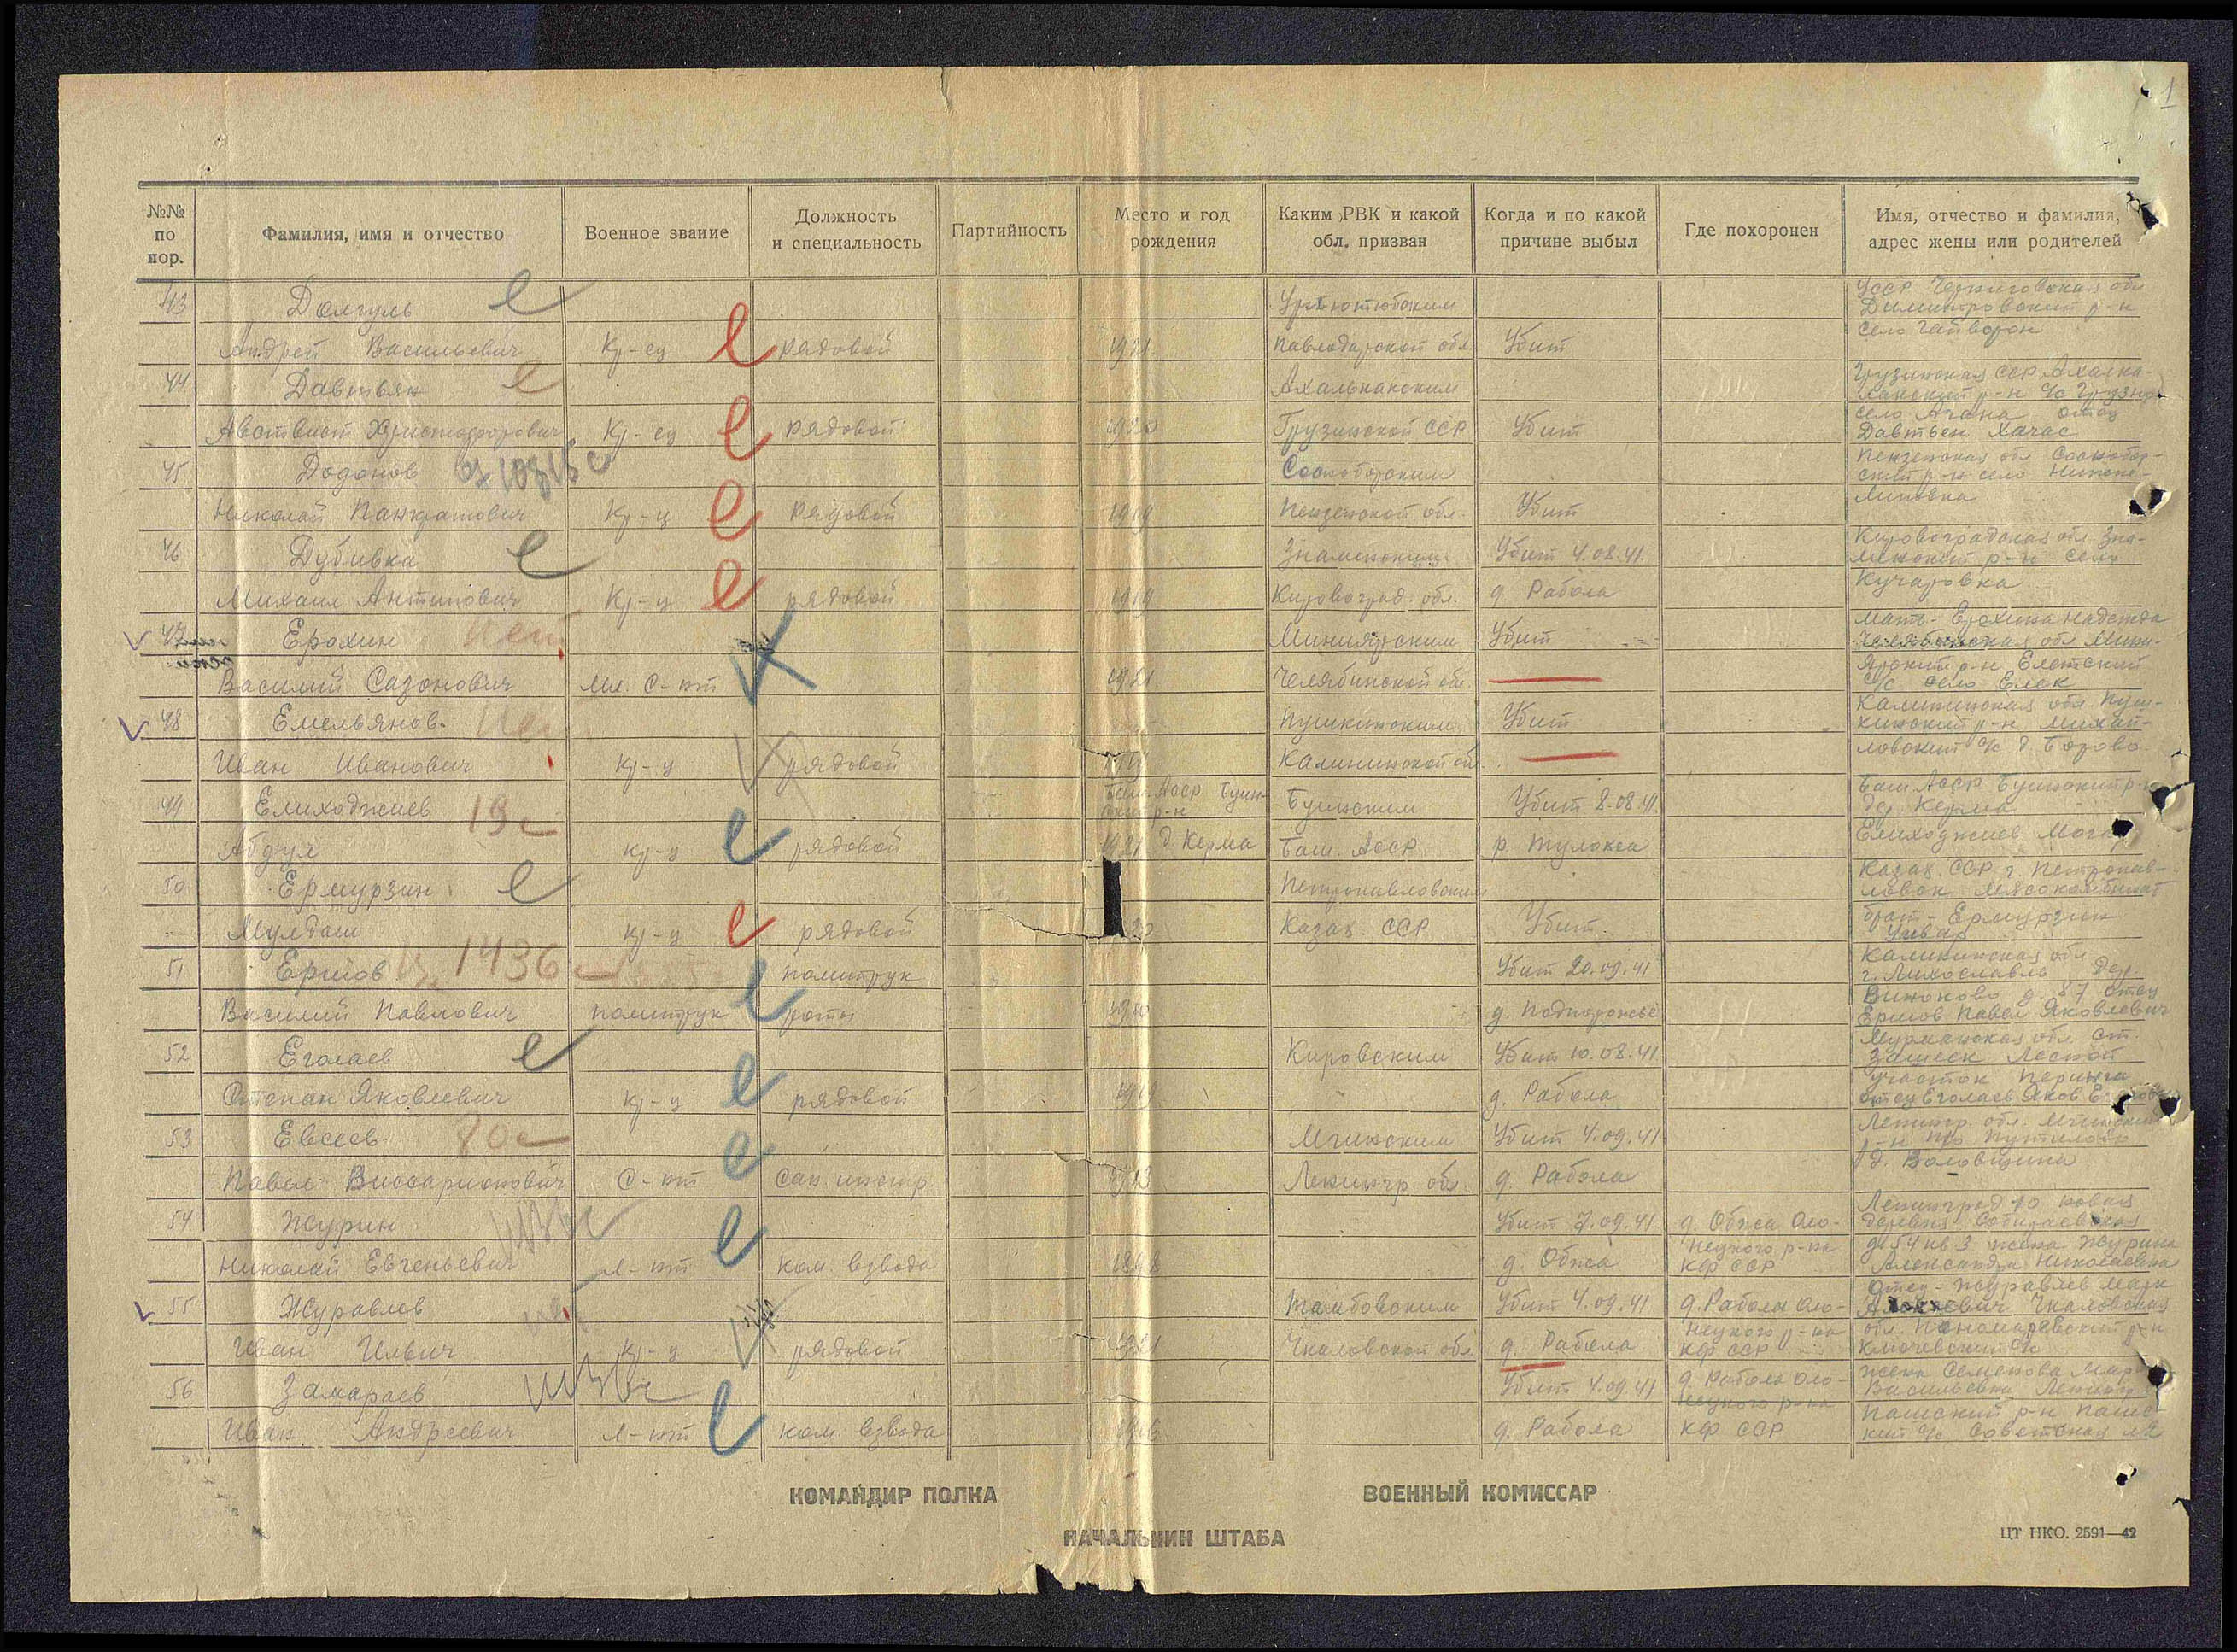 1
№№ по пор.
Фамилия, имя и отчество
Военное звание
Должность и специальность
Партийность
Место и год рождения
Каким РВК и какой обл. призван
Когда и по какой причине выбыл
Где похоронен
Имя, отчество и фамилия, адрес жены или родителей
43 Долгуль
Андрей Васильевич Кр-ец рядовой 1921 Павлодарской обл Убит
УССР Черниговская обл
Димитровский р-н
село Гайворон
44 Давтвян Ахалькакским
Христофорович Кр-ец рядовой 1920 Грузинской ССР Убит
Грузинская ССР Ахалка-
лакский р-н с/с
село Ачана отец
Давтвен Хачас
45 Додонов Сосноборским
Николай Панкратович Кр-ц рядовой 1919 Пензенской обл. Убит
Пензенская обл Соснобор-
ский р-н село Нижне-
Липовка
46 Дубивка Знаменским Убит 4.08.41.
Михаил Антипович Кр-ц рядовой 1919 Кировоград. обл. д Рабола
Кировоградская обл. Зна-
менский р-н село
Кучаровка
47 Ерохин нет Миниярским Убит
Василий Сазонович Мл. с-нт 1921 Челябинской обл.
Мать - Ерохина Надежда
Челябинская обл Мини-
ярский р-н Елетский
с/с село Елек
48 Емельянов нет Пушкинским Убит
Иван Иванович Кр-ц рядовой Калининской об.
Калининская обл. Пуш-
кинский р-н Михай-
ловский с/с д. Борово
49 Елиходжиев 19 Баш. АССР Буин-
ский р-н Буинским Убит 8.08.41.
Абдул кр-ц рядовой 1921 д Керма Баш. АССР р. Тулокса
Баш АССР Буинский р-н
дер. Керма
Елиходжиев
50 Ермурзин Петропавловским
Мулдаш кр-ц рядовой Казах. ССР Убит.
Казах. ССР г. Петропав-
ловск Мясокомбинат
брат - Ермурзин
51 Ершов 1436 политрук Убит 20.09.41
Василий Павлович политрук роты 1910 д. Подпорожье
Калининская обл
г. Лихославль дер.
Виноково д. 87 отец
Ершов Павел Яковлевич
52 Еголаев Кировским Убит 10.08.41
Степан Яковлевич кр-ц рядовой 1919 д. Рабола
Мурманская обл ст.
Зашеек Лесной
участок
отец Еголаев Яков
53 Евсеев 80 Мгинским Убит 4.09.41
Павел Виссарионович С-нт Сан. инстр. 1913 Ленингр. обл. д. Рабола
Ленингр. обл. Мгинский
р-н
д. Валовщина
54 Журин Убит 7.09.41 д. Обжа Оло-
нецкого р-на
Николай Евгеньевич л-нт ком. взвода 1898 д. Обжа КФ ССР
Ленинград 10 новая
деревня
д 54 кв 3 жена Журина
Александра Николаевна
55 Журавлев Тамбовским Убит 4.09.41 д. Рабола Оло-
нецкого р-на
Иван Ильич Кр-ц рядовой 1921 Чкаловской обл д. Рабола КФ ССР
Отец - Журавлев Марк
Чкаловская
обл. Пономаревский р-н
Ключевский с/с
56 Замараев Убит 4.09.41 д Рабола Оло-
нецкого р-на
Иван Андреевич л-нт ком. взвода 1916 д. Рабола КФ ССР
жена Семенова
Васильевна
Пашский р-н Паш-
кий с/с Советская
КОМАНДИР ПОЛКА
ВОЕННЫЙ КОМИССАР
НАЧАЛЬНИК ШТАБА
ЦТ НКО. 2591—42